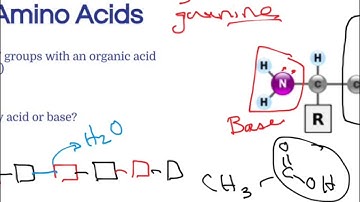 Amino Acids
groups with an organic acid
)
y acid or base?
H₂O
H
H
N
C
H
C
R
Base
O
CH₃
C
OH